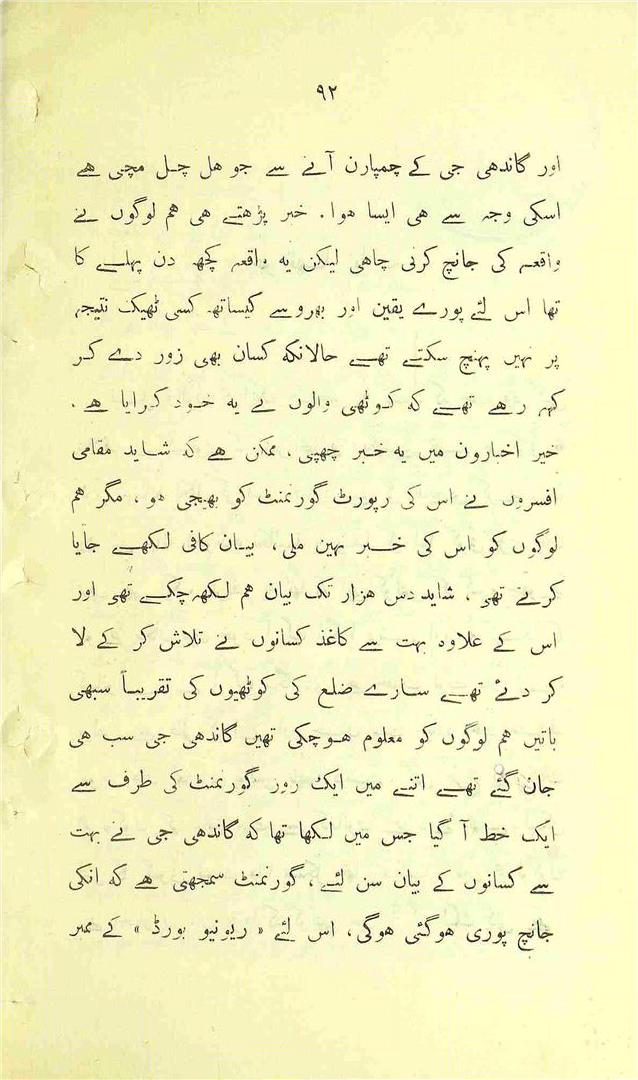 ۹۲
اور گاندھی جی کے چمپارن آنے سے جو ھل چل مچی ھے
اسکی وجہ سے ھی ایسا ھوا. خبر پڑھتے ھی ھم لوگوں نے
واقعہ کی جانچ کرنی چاھی لیکن یہ واقعہ کچھ دن پہلے کا
تھا اس لئے پورے یقین اور بھروسے کیساتھ کسی ٹھیک نتیجہ
پر نہیں پہنچ سکتے تھے حالانکہ کسان بھی زور دے کر
کہہ رھے تھے کہ کوٹھی والوں نے یہ خود کرایا ھے.
خیر اخبارون میں یہ خبر چھپی، ممکن ھے کہ شاید مقامی
افسروں نے اس کی رپورٹ گورنمنٹ کو بھیجی ھو، مگر ھم
لوگوں کو اس کی خبر نہین ملی، بیان کافی لکھے جایا
کرتے تھی، شاید دس ھزار تک بیان ھم لکھہ چکے تھی اور
اس کے علاوہ بہت سے کاغذ کسانوں نے تلاش کر کے لا
کر دئے تھے سارے ضلع کی کوٹھیوں کی تقریباً سبھی
باتیں ھم لوگوں کو معلوم ھوچکی تھیں گاندھی جی سب ھی
جان گئے تھے اتنے میں ایک روز گورنمنٹ کی طرف سے
ایک خط آ گیا جس میں لکھا تھا کہ گاندھی جی نے بہت
سے کسانوں کے بیان سن لئے، گورنمنٹ سمجھتی ھے کہ انکی
جانچ پوری ھوگئی ھوگی، اس لئے «ریونیو بورڈ» کے ممبر